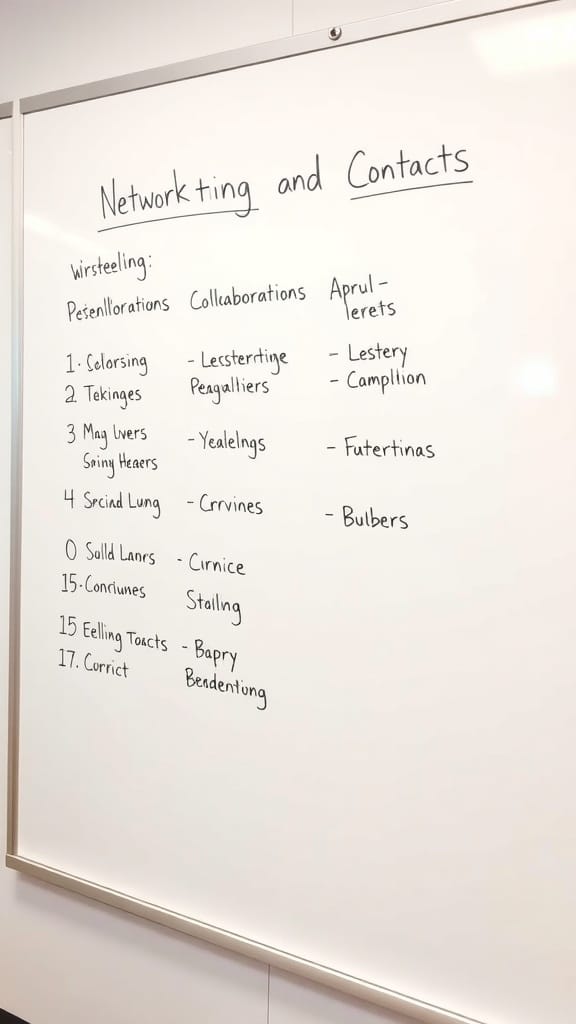 Networkting and Contacts
Wirsteeling:
Pesenll'orations Collcaborations Aprul-
lerets
1. Colorsing - Lescterrtinge - Lestery
2. Tekinges Peagulliers - Campltion
3 May lvers - Yealelngs - Futertinas
Sainy Heaers
4 Srciad Lung - Crrvines - Bulbers
0 Sulld Lanrs - Cirnice
15. Conriunes Stallng
15 Eelling Toacts - Bapry
17. Corrict Bendentiong